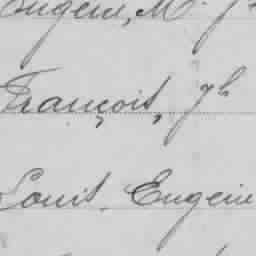 Eugène, M. J
François, Jh
Louis Eugène